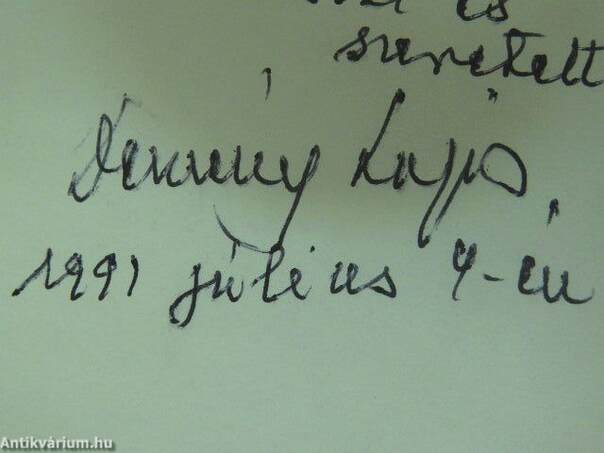 és
szeretett
Lajos
1991 július 4-én
Antikvárium.hu